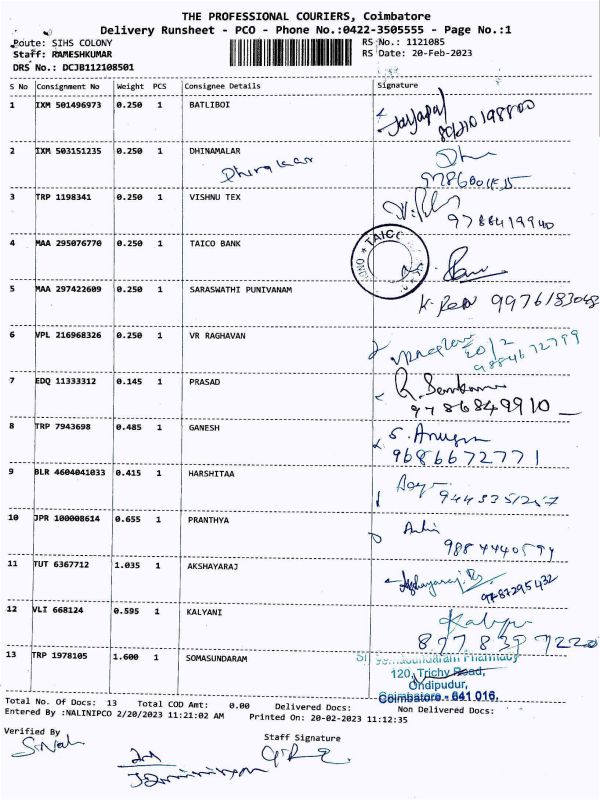 THE PROFESSIONAL COURIERS, Coimbatore
Delivery Runsheet - PCO - Phone No.:0422-3505555 - Page No.:1
Route: SIHS COLONY RS No.: 1121085
Staff: RAMESHKUMAR RS Date: 20-Feb-2023
DRS No.: DCJB112108501
S No Consignment No Weight PCS Consignee Details Signature
1 IXM 501496973 0.250 1 BATLIBOI
2 IXM 503151235 0.250 1 DHINAMALAR
3 TRP 1198341 0.250 1 VISHNU TEX
9788419940
4 MAA 295076770 0.250 1 TAICO BANK
TAICO
5 MAA 297422609 0.250 1 SARASWATHI PUNIVANAM
9976183048
6 VPL 216968326 0.250 1 VR RAGHAVAN
9884672799
7 EDQ 11333312 0.145 1 PRASAD
9786849910
8 TRP 7943698 0.485 1 GANESH
9686672771
9 BLR 4604041033 0.415 1 HARSHITAA
10 JPR 100008614 0.655 1 PRANTHYA
11 TUT 6367712 1.035 1 AKSHAYARAJ
Akshayaraj
9787295432
12 VLI 668124 0.595 1 KALYANI
13 TRP 1978105 1.600 1 SOMASUNDARAM
Pharmacy
120, Trichy Road,
Ondipudur,
Coimbatore - 641 016.
Total No. Of Docs: 13 Total COD Amt: 0.00 Delivered Docs: Non Delivered Docs:
Entered By :NALINIPCO 2/20/2023 11:21:02 AM Printed On: 20-02-2023 11:12:35
Verified By Staff Signature